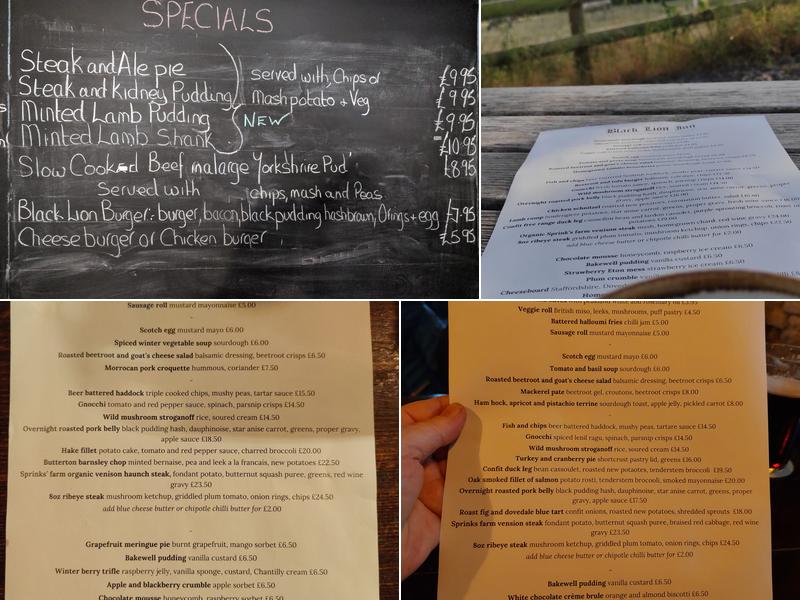 SPECIALS
Steak and Ale pie
Steak and kidney Pudding
Minted Lamb Pudding
Minted Lamb Shank
served with, Chips or
Mash potato + Veg
NEW
£9.95
£9.95
£9.95
£10.95
Slow Cooked Beef in a large Yorkshire Pud' £8.95
Served with chips, mash and Peas
Black Lion Burger: burger, bacon, black pudding hashbrown, Orings + egg £7.95
Cheese burger or Chicken burger £5.95
Black Lion Inn
Overnight roasted pork belly
Organic Sprink's farm venison steak
8oz ribeye steak griddled plum tomato, mushroom ketchup, onion rings, chips £22.50
add blue cheese butter or chipotle chilli butter for £2.00
Chocolate mousse honeycomb, raspberry ice cream £6.50
Bakewell pudding vanilla custard £6.50
Strawberry Eton mess strawberry ice cream £6.50
Plum crumble
Cheeseboard Staffordshire,
Sausage roll mustard mayonnaise £5.00
-
Scotch egg mustard mayo £6.00
Spiced winter vegetable soup sourdough £6.00
Roasted beetroot and goat's cheese salad balsamic dressing, beetroot crisps £6.50
Morrocan pork croquette hummous, coriander £7.50
-
Beer battered haddock triple cooked chips, mushy peas, tartar sauce £15.50
Gnocchi tomato and red pepper sauce, spinach, parsnip crisps £14.50
Wild mushroom stroganoff rice, soured cream £14.50
Overnight roasted pork belly black pudding hash, dauphinoise, star anise carrot, greens, proper gravy,
apple sauce £18.50
Hake fillet potato cake, tomato and red pepper sauce, charred broccoli £20.00
Butterton barnsley chop minted bernaise, pea and leek a la francais, new potatoes £22.50
Sprinks' farm organic venison haunch steak, fondant potato, butternut squash puree, greens, red wine
gravy £23.50
8oz ribeye steak mushroom ketchup, griddled plum tomato, onion rings, chips £24.50
add blue cheese butter or chipotle chilli butter for £2.00
-
Grapefruit meringue pie burnt grapefruit, mango sorbet £6.50
Bakewell pudding vanilla custard £6.50
Winter berry trifle raspberry jelly, vanilla sponge, custard, Chantilly cream £6.50
Apple and blackberry crumble apple sorbet £6.50
Chocolate mousse honeycomb, raspberry sorbet £6.50
Veggie roll British miso, leeks, mushrooms, puff pastry £4.50
Battered halloumi fries chilli jam £5.00
Sausage roll mustard mayonnaise £5.00
-
Scotch egg mustard mayo £6.00
Tomato and basil soup sourdough £6.00
Roasted beetroot and goat's cheese salad balsamic dressing, beetroot crisps £6.50
Mackerel pate beetroot gel, croutons, beetroot crisps £8.00
Ham hock, apricot and pistachio terrine sourdough toast, apple jelly, pickled carrot £8.00
-
Fish and chips beer battered haddock, mushy peas, tartare sauce £14.50
Gnocchi spiced lenil ragu, spinach, parsnip crisps £14.50
Wild mushroom stroganoff rice, soured cream £14.50
Turkey and cranberry pie shortcrust pastry lid, greens £16.00
Confit duck leg bean cassoulet, roasted new potaotes, tenderstem broccoli £19.50
Oak smoked fillet of salmon potato rosti, tenderstem broccoli, smoked mayonnaise £20.00
Overnight roasted pork belly black pudding hash, dauphinoise, star anise carrot, greens, proper
gravy, apple sauce £17.50
Roast fig and dovedale blue tart confit onions, roasted new potatoes, shredded sprouts £18.00
Sprinks farm vension steak fondant potato, butternut squash puree, braised red cabbage, red wine
gravy £23.50
8oz ribeye steak mushroom ketchup, griddled plum tomato, onion rings, chips £24.50
add blue cheese butter or chipotle chilli butter for £2.00
-
Bakewell pudding vanilla custard £6.50
White chocolate crème brule orange and almond biscotti £6.50